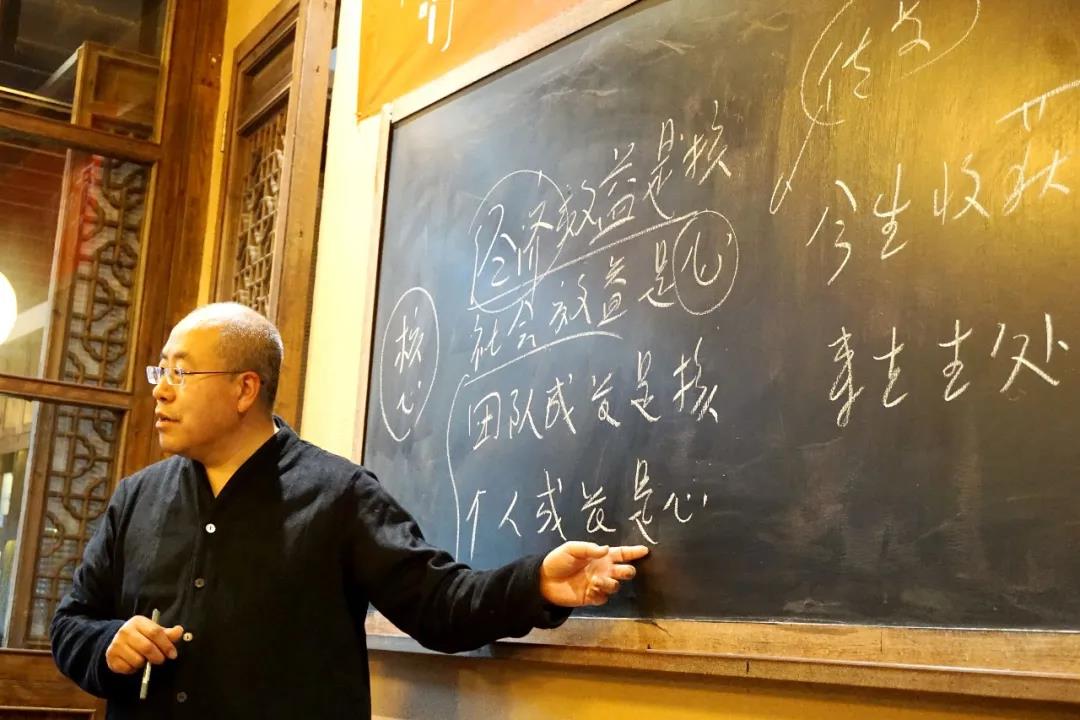 核心
经济效益是核
社会效益是心
团队成长是核
个人成长是心
今生收获
来去生处